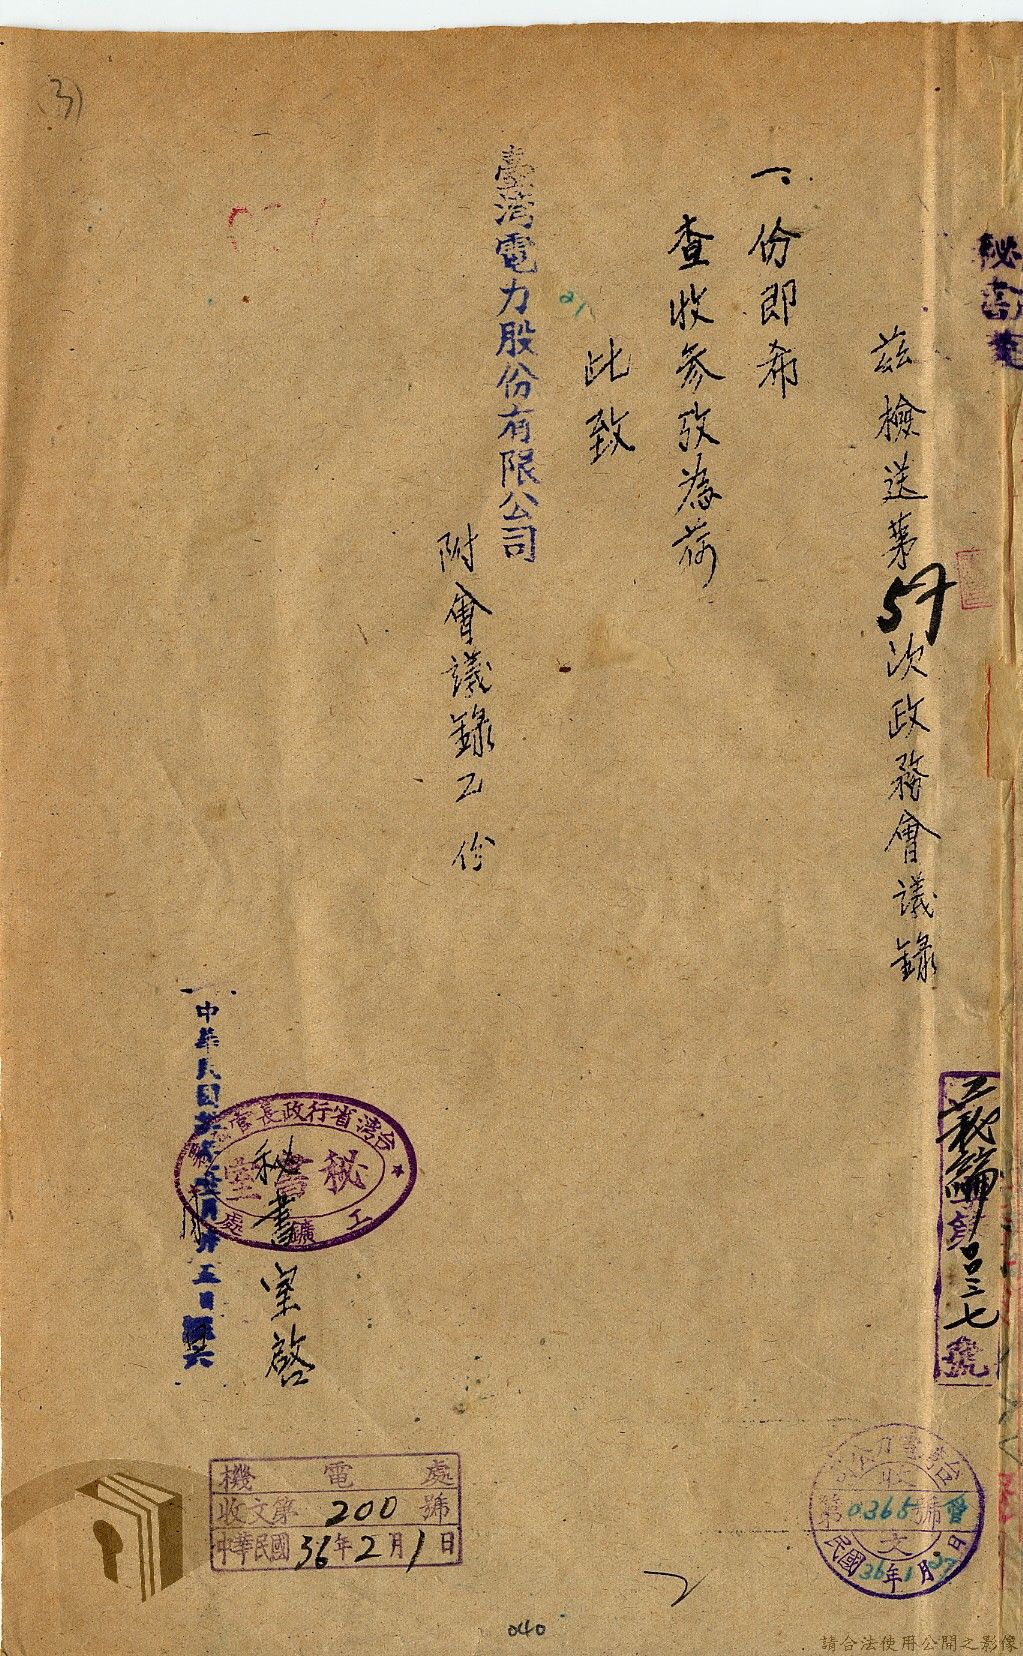 (3)
秘書室
茲檢送第57次政務會議錄
一份即希
查收參攷為荷
此致
臺灣電力股份有限公司
附會議錄乙份
秘書室啓
台灣省行政長官公署
工鑛處
秘書室
中華民國 月廿五日
工秘編 字
三七
號
機電處
收文第200號
中華民國36年2月1日
台灣電力公司
收文
第0365號
民國36年1月27日
040
請合法使用公開之影像